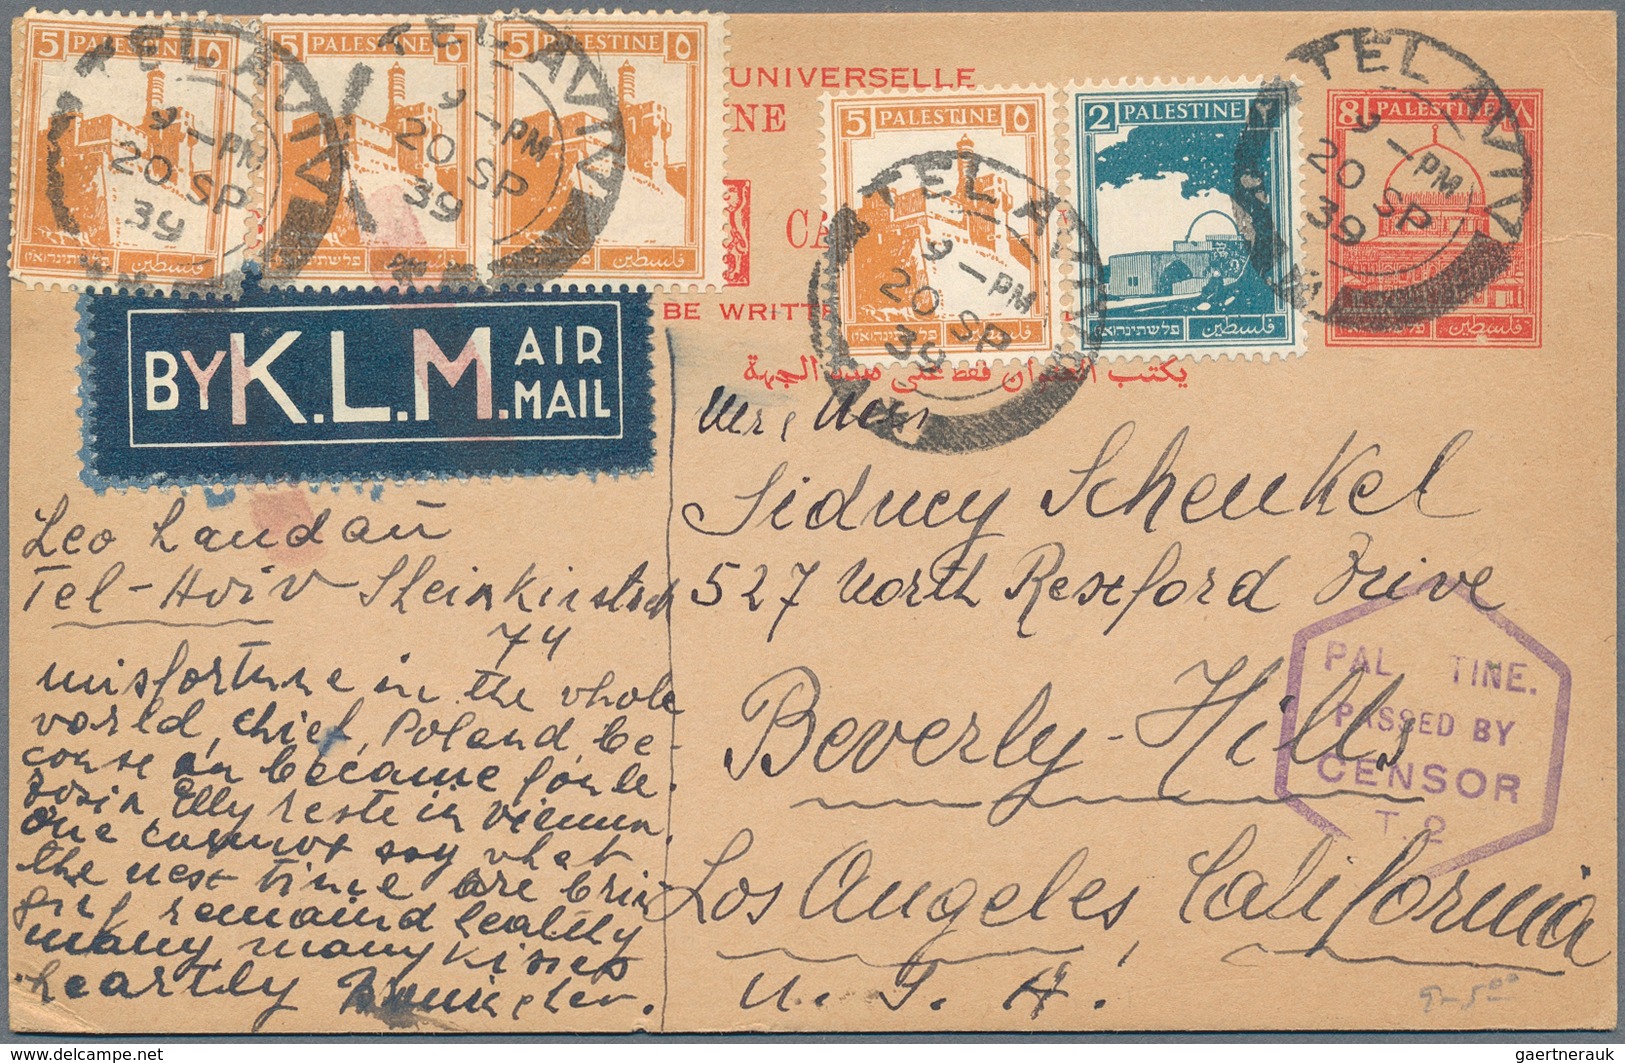 5 PALESTINE ٥
5 PALESTINE ٥
5 PALESTINE ٥
TEL AVIV
9-PM
20 SP
39
TEL AVIV
9-PM
20 SP
39
UNIVERSELLE
NE
CA
BE WRITT
5 PALESTINE ٥
2 PALESTINE
8 PALESTINE ٨
TEL AVIV
9-PM
20 SP
39
TEL AVIV
9-PM
20 SP
39
פלשתינה(א"י) فلسطين
פלשתינה(א"י) فلسطين
פלשתינה(א"י) فلسطين
פלשתינה(א"י) فلسطين
פלשתינה(א"י) فلسطين
يكتب العنوان فقط على هذه الجهة
BY K.L.M. AIR MAIL
Leo Landau
Tel-Aviv
74
misfortune in the whole
world, chief, Poland, be-
became
Elly reste in vienna.
one cannot say what
the next time are brin
ging remaind
many, many kisses
heartly
Mr, Mrs
Sidney Schenkel
527 North Rexford Drive
Beverly-Hills
Los Angeles, California
U. S. A.
PAL TINE.
PASSED BY
CENSOR
T. 2
delcampe.net
gaertnerauk